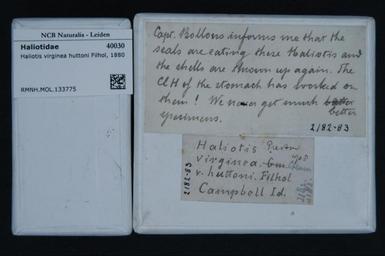 NCB Naturalis - Leiden
Haliotidae 40030
Haliotis virginea huttoni Filhol, 1880
RMNH.MOL.133775
Capt. Bollons informs me that the
seals are eating these Haliotis and
the shells are thrown up again. The
ClH of the stomach has worked on
them! We never get much better
better
specimens.
2182-83
Haliotis
virginea
v. huttoni. Filhol
Campbell Id.
2182-83